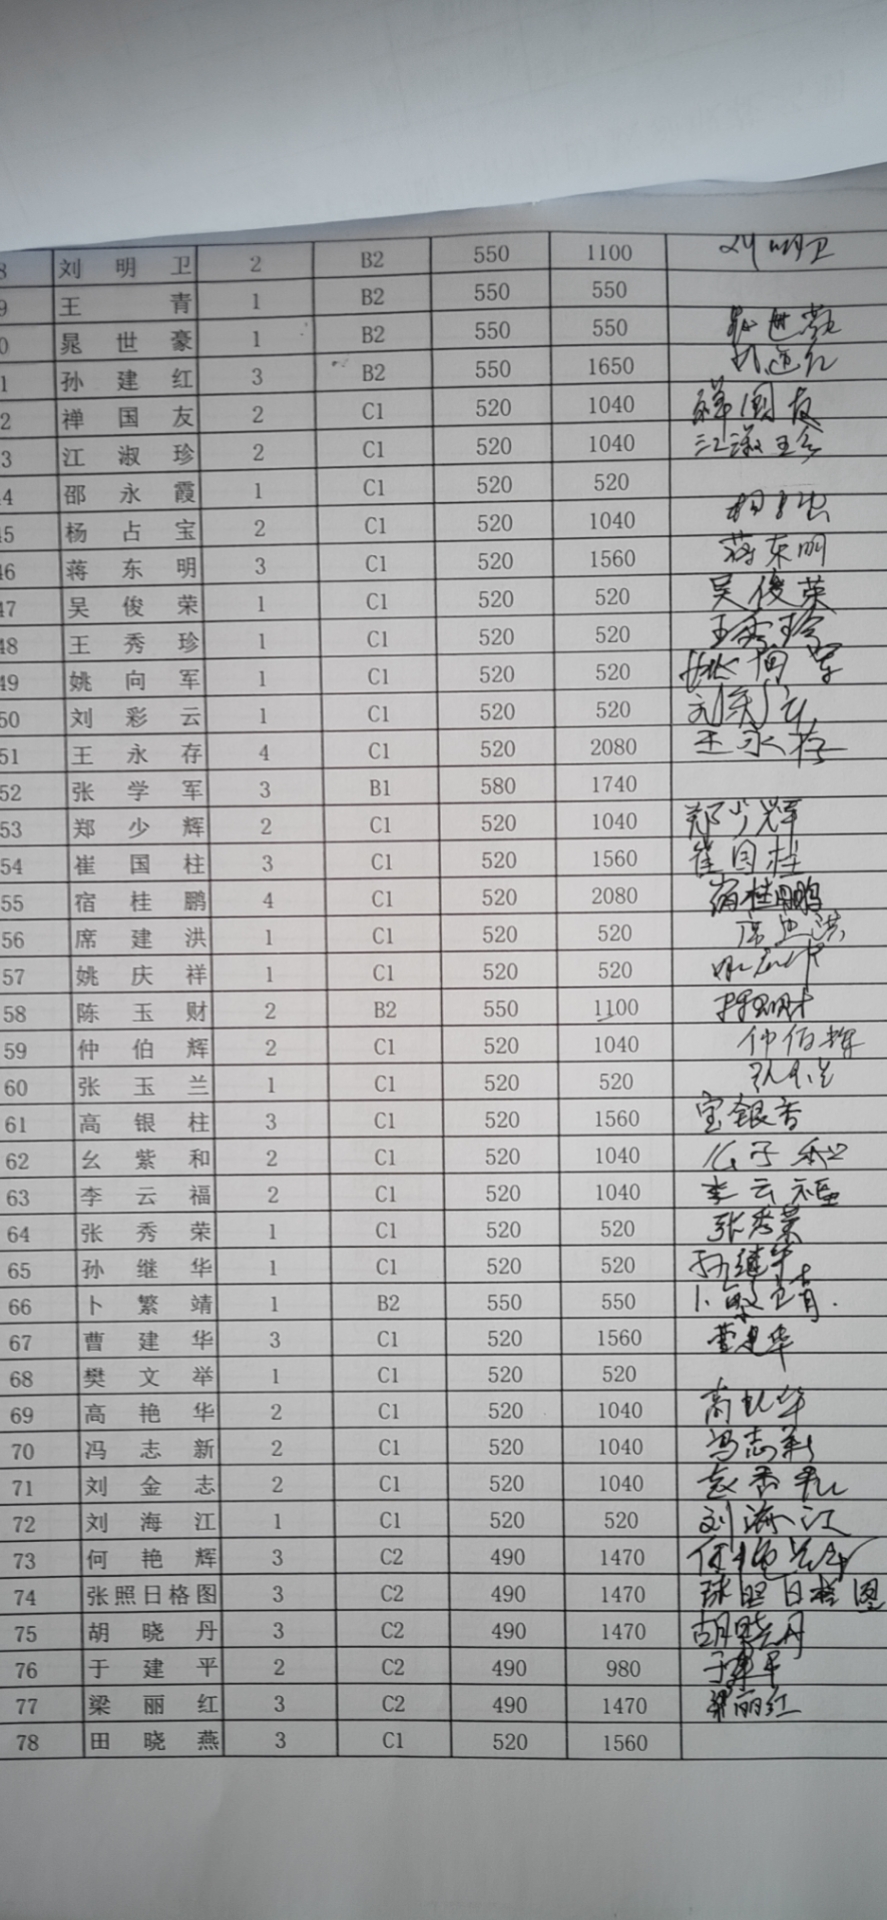 8 刘明卫 2 B2 550 1100 刘明卫
9 王青 1 B2 550 550
0 晁世豪 1 B2 550 550
1 孙建红 3 B2 550 1650
2 禅国友 2 C1 520 1040 禅国友
3 江淑珍 2 C1 520 1040 江淑珍
4 邵永霞 1 C1 520 520
45 杨占宝 2 C1 520 1040
46 蒋东明 3 C1 520 1560 蒋东明
47 吴俊荣 1 C1 520 520 吴俊荣
48 王秀珍 1 C1 520 520 王秀珍
49 姚向军 1 C1 520 520 姚向军
50 刘彩云 1 C1 520 520 刘彩云
51 王永存 4 C1 520 2080 王永存
52 张学军 3 B1 580 1740
53 郑少辉 2 C1 520 1040 郑少辉
54 崔国柱 3 C1 520 1560 崔国柱
55 宿桂鹏 4 C1 520 2080 宿桂鹏
56 席建洪 1 C1 520 520 席建洪
57 姚庆祥 1 C1 520 520
58 陈玉财 2 B2 550 1100
59 仲伯辉 2 C1 520 1040 仲佰辉
60 张玉兰 1 C1 520 520
61 高银柱 3 C1 520 1560
62 幺紫和 2 C1 520 1040
63 李云福 2 C1 520 1040 李云福
64 张秀荣 1 C1 520 520 张秀荣
65 孙继华 1 C1 520 520 孙继华
66 卜繁靖 1 B2 550 550 卜繁靖
67 曹建华 3 C1 520 1560 曹建华
68 樊文举 1 C1 520 520
69 高艳华 2 C1 520 1040 高艳华
70 冯志新 2 C1 520 1040 冯志新
71 刘金志 2 C1 520 1040
72 刘海江 1 C1 520 520 刘海江
73 何艳辉 3 C2 490 1470 何艳辉
74 张照日格图 3 C2 490 1470 张照日格图
75 胡晓丹 3 C2 490 1470 胡晓丹
76 于建平 2 C2 490 980 于建平
77 梁丽红 3 C2 490 1470 梁丽红
78 田晓燕 3 C1 520 1560